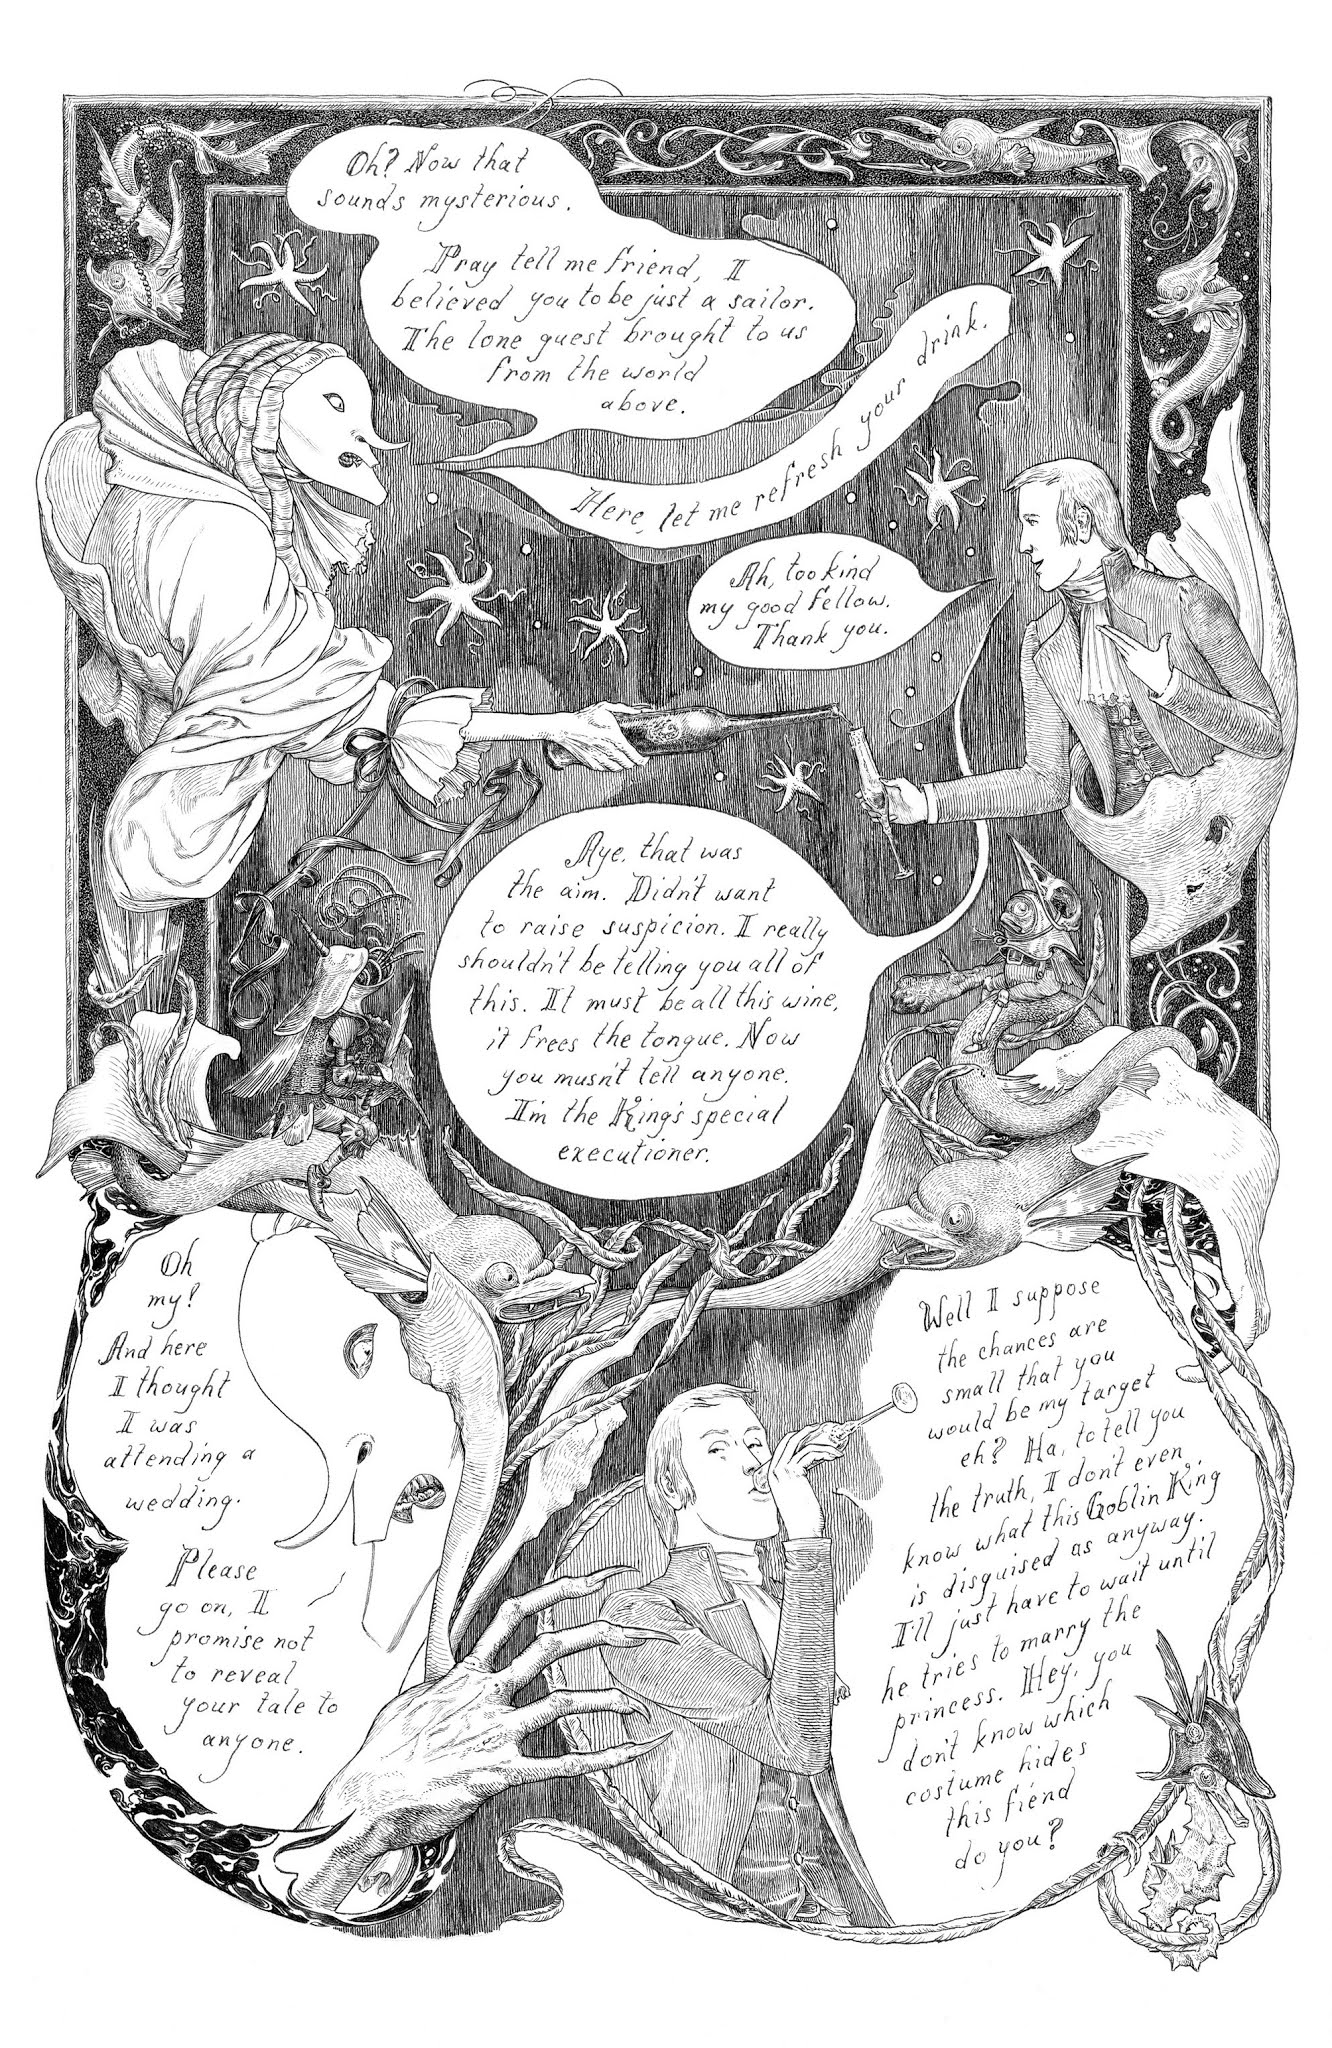 Oh? Now that
sounds mysterious.
Pray tell me friend, I
believed you to be just a sailor.
The lone guest brought to us
from the world
above.
Here, let me refresh your drink.
Ah, too kind
my good fellow.
Thank you.
Aye, that was
the aim. Didn't want
to raise suspicion. I really
shouldn't be telling you all of
this. It must be all this wine,
it frees the tongue. Now
you musn't tell anyone.
I'm the King's special
executioner.
Oh
my?
And here
I thought
I was
attending a
wedding.
Please
go on, I
promise not
to reveal
your tale to
anyone.
Well I suppose
the chances are
small that you
would be my target
eh? Ha, to tell you
the truth, I don't even
know what this Goblin King
is disguised as anyway.
I'll just have to wait until
he tries to marry the
princess. Hey, you
don't know which
costume hides
this fiend
do you?